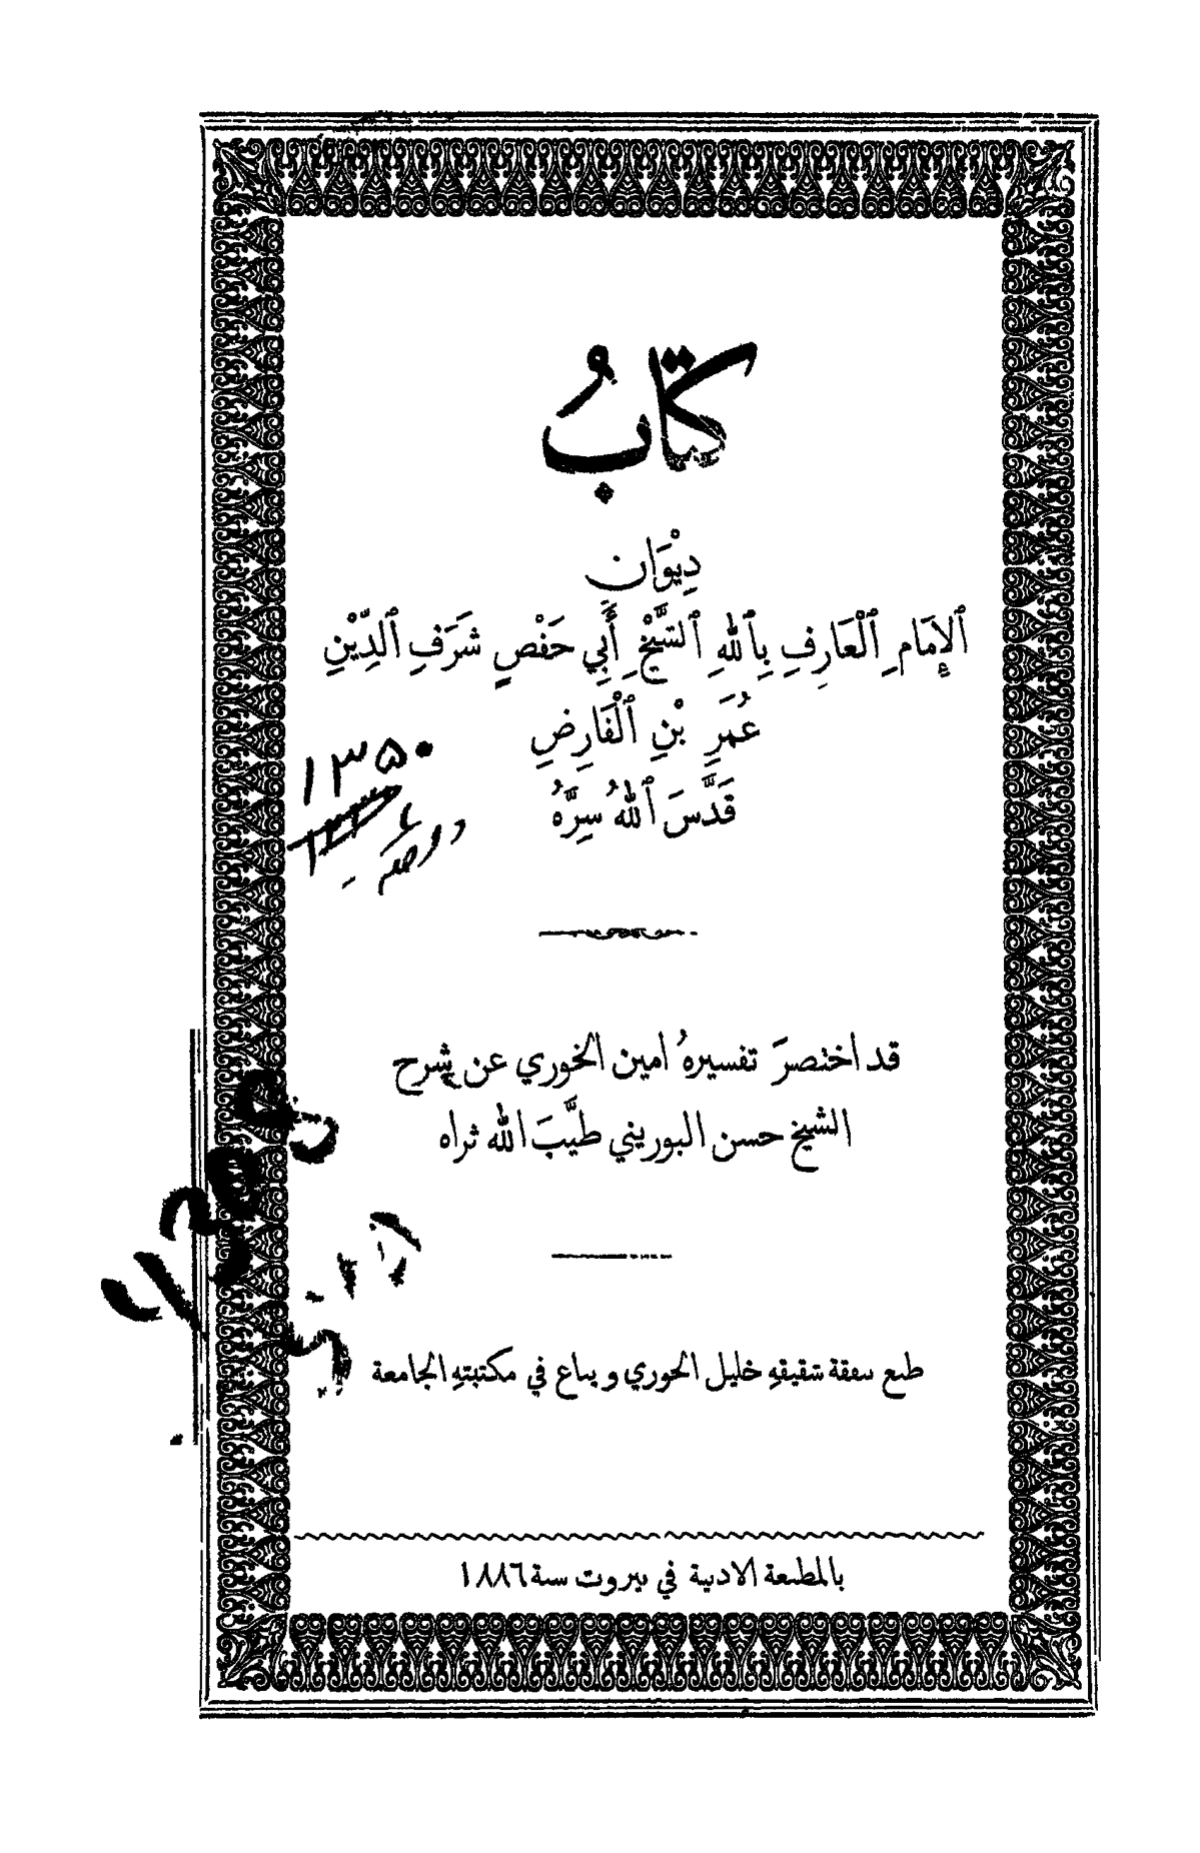 كتابُ
دِيْوَانِ
ٱلإِمَامِ ٱلْعَارِفِ بِٱللهِ ٱلشَّيْخِ أَبِي حَفْصٍ شَرَفِ ٱلدِّيْنِ
عُمَرِ بْنِ ٱلْفَارِضِ
قَدَّسَ ٱللهُ سِرَّهُ
١٣٥٠
قد اختصرَ تفسيرهُ امين الخوري عن شرح
الشيخ حسن البوريني طيَّبَ الله ثراه
طبع بنفقة شقيقهِ خليل الخوري ويباع في مكتبتهِ الجامعة
بالمطبعة الادبية في بيروت سنة ١٨٨٦